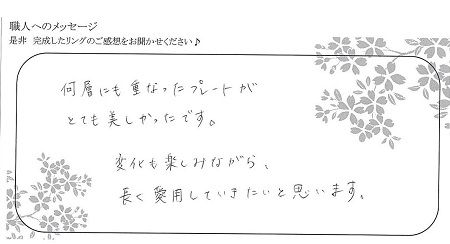 職人へのメッセージ
是非 完成したリングのご感想をお聞かせください♪
何層にも重なったプレートが
とても美しかったです。
変化も楽しみながら、
長く愛用していきたいと思います。